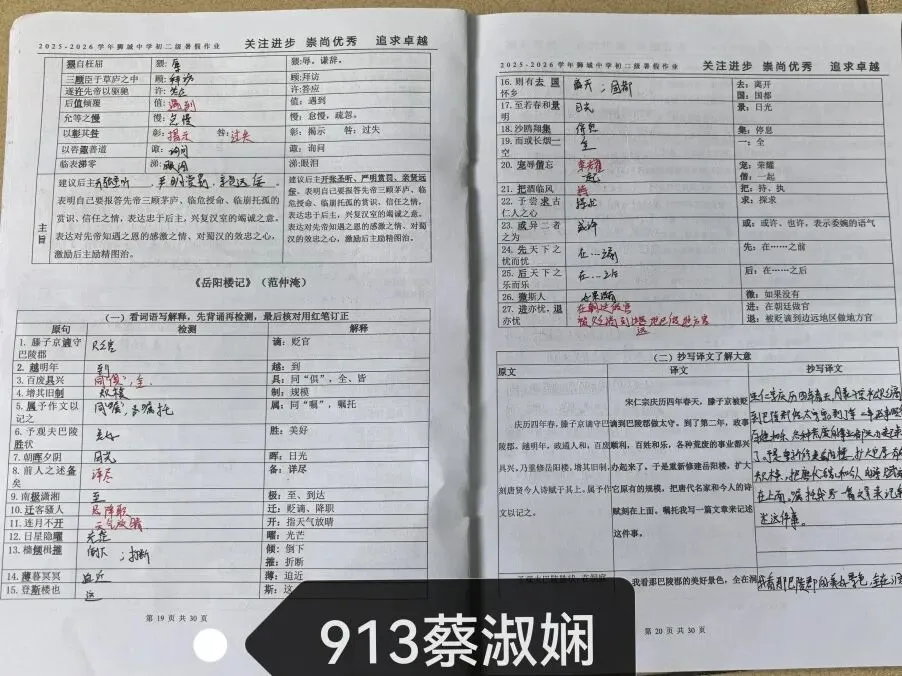 2025-2026学年狮城中学初二级暑假作业 关注进步 崇尚优秀 追求卓越
猥自枉屈 猥: 辱 猥:辱。谦辞。
三顾臣于草庐之中 顾: 拜访 顾:拜访
遂许先帝以驱驰 许: 答应 许:答应
后值倾覆 值: 遇到 值:遇到
允等之慢 慢: 怠慢 慢:怠慢,疏忽。
以彰其咎 彰: 揭示 咎: 过失 彰:揭示 咎:过失
以咨诹善道 诹: 询问 诹:询问
临表涕零 涕: 眼泪 涕:眼泪
主旨
建议后主开张圣听、严明赏罚、亲贤远佞。
表明自己要报答先帝三顾茅庐、临危授命、临崩托孤的
赏识、信任之情,表达忠于后主,兴复汉室的竭诚之意。
表达对先帝知遇之恩的感激之情、对蜀汉的效忠之心,
激励后主励精图治。
建议后主开张圣听、严明赏罚、亲贤远
佞。表明自己要报答先帝三顾茅庐、临
危授命、临崩托孤的赏识、信任之情,
表达忠于后主,兴复汉室的竭诚之意。
表达对先帝知遇之恩的感激之情、对蜀
汉的效忠之心,激励后主励精图治。
《岳阳楼记》(范仲淹)
(一)看词语与解释,先背诵再检测,最后核对用红笔订正
原句 检测 解释
1. 滕子京谪守巴陵郡 贬官 谪:贬官
2. 越明年 到 越:到
3. 百废具兴 同“俱”,全 具:同“俱”,全、皆
4. 增其旧制 规模 制:规模
5. 属予作文以记之 同“嘱”,嘱托 属:同“嘱”,嘱托
6. 予观夫巴陵胜状 美好 胜:美好
7. 朝晖夕阴 日光 晖:日光
8. 前人之述备矣 详尽 备:详尽
9. 南极潇湘 至 极:至、到达
10. 迁客骚人 降职 迁:贬谪、降职
11. 连月不开 天气放晴 开:指天气放晴
12. 日星隐曜 光芒 曜:光芒
13. 樯倾楫摧 倒下 ;折断 倾:倒下
摧:折断
14. 薄暮冥冥 迫近 薄:迫近
15. 登斯楼也 这 斯:这
第 19 页 共 30 页
2025-2026学年狮城中学初二级暑假作业 关注进步 崇尚优秀 追求卓越
16. 则有去国怀乡 离开 ;国都 去:离开
国:国都
17. 至若春和景明 日光 景:日光
18. 沙鸥翔集 停息 集:停息
19. 而或长烟一空 全 一:全
20. 宠辱偕忘 荣耀 一起 宠:荣耀
偕:一起
21. 把酒临风 持 把:持、执
22. 予尝求古仁人之心 探求 求:探求
23. 或异二者之为 或许 或:或许、也许,表示委婉的语气
24. 先天下之忧而忧 在…之前 先:在……之前
25. 后天下之乐而乐 在…之后 后:在……之后
26. 微斯人 如果没有 微:如果没有
27. 进亦忧,退亦忧 在朝廷做官 进:在朝廷做官
退:被贬谪到边远地区做地方官
(二)抄写译文了解大意
原文 译文 抄写译文
庆历四年春,滕子京谪守巴
陵郡。越明年,政通人和,百废
具兴,乃重修岳阳楼,增其旧制,
刻唐贤今人诗赋于其上。属予作
文以记之。
宋仁宗庆历四年春天,滕子京被贬
谪到巴陵郡做太守。到了第二年,政事
顺利,百姓和乐,各种荒废的事业都兴
办起来了。于是重新修建岳阳楼,扩大
它原有的规模,把唐代名家和今人的诗
赋刻在上面。嘱托我写一篇文章来记述
这件事。
述这件事。
我看那巴陵郡的美好景色,全在洞
我看那巴陵郡的美好景色,全在洞
第 20 页 共 30 页
913蔡淑娴